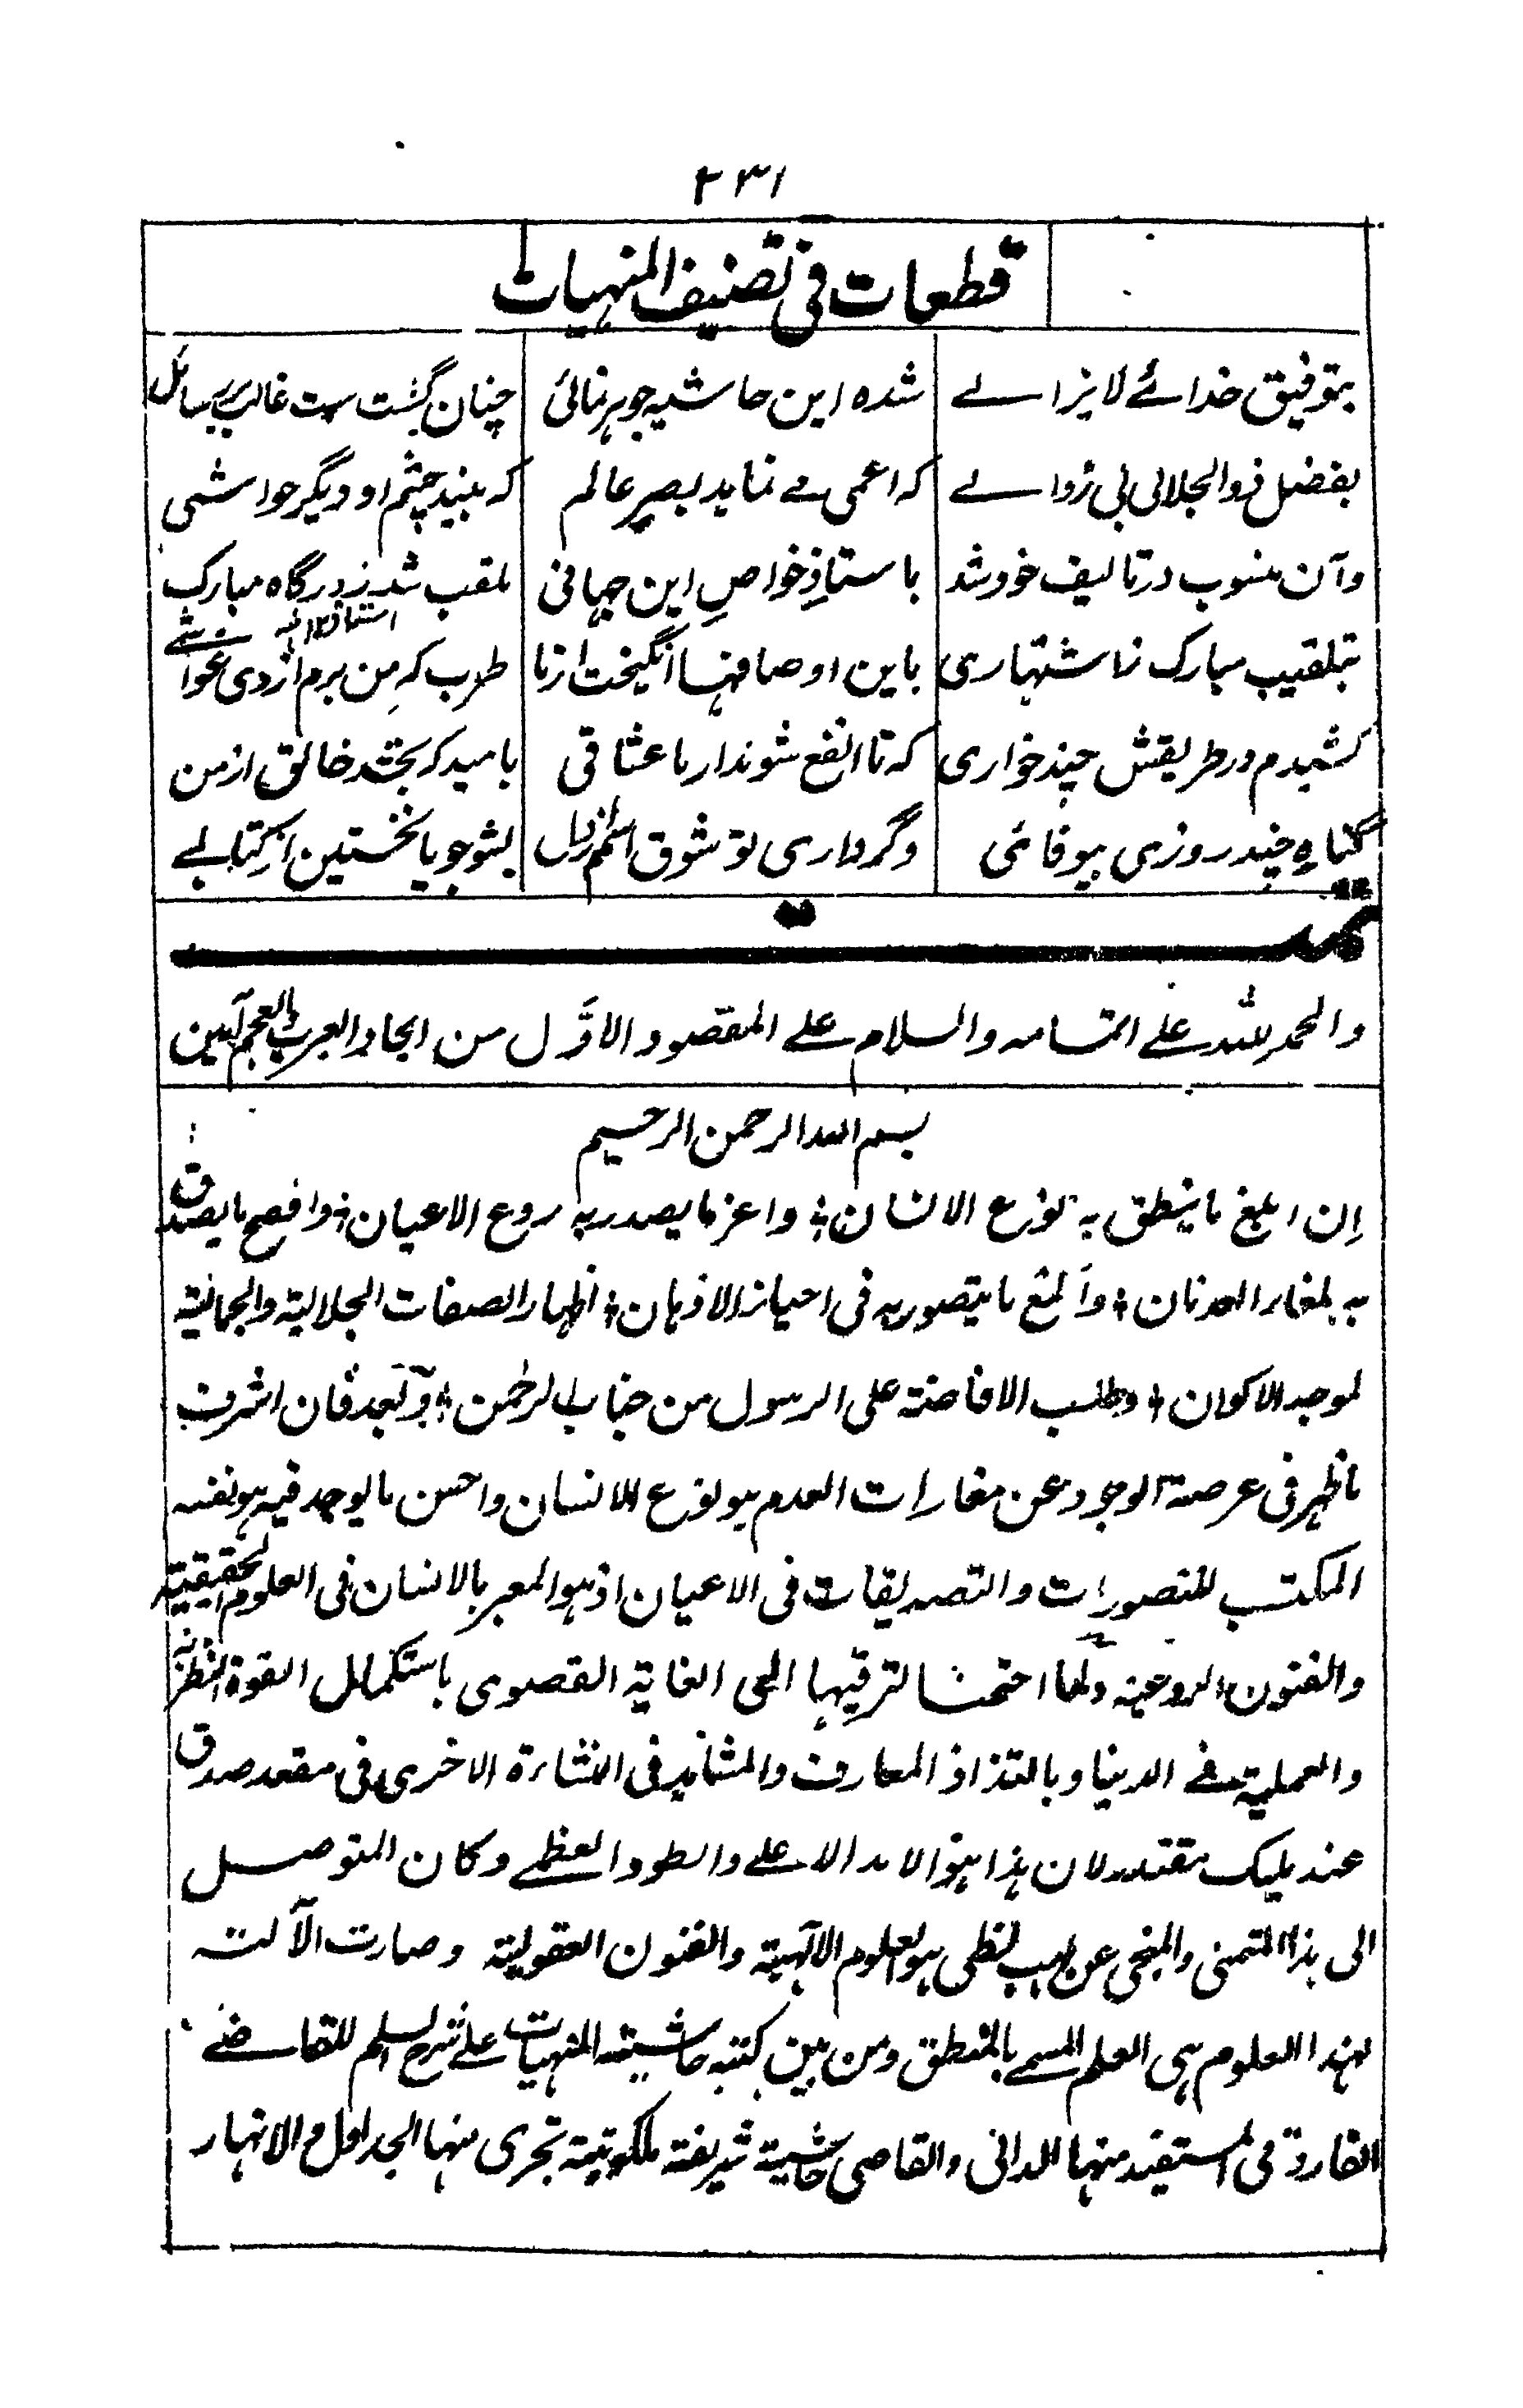 ٢٣١
قطعات فی تصنیف المنہیات
بتوفیق خدائے لایزالے شدہ این حاشیہ جوہر نمائی چنان گشت ست غالب بر رسائل
بفضل ذوالجلالی بی زوالے کہ اعمی مے نماید بصیر عالم کہ بیند چشم او دیگر حواشی
وآن منسوب در تالیف خود شد باستاذِ خواصِ این جہانی ملقب شد ز درگاہ مبارک
بتلقیب مبارک ز اشتہاری باین اوصافہا انگیخت از ما طرب کہ من برم از وی غواشے
کشیدم در طریقش چند خواری کہ تا انفع شوند ار ما عشاقی بامید کہ بخشد خالق از من
گناہِ چند روزی بیوفائی وگر داری تو شوق اسمم از دل بشو جویا نخستین از کتابے
تمت
والحمد للہ علے اتمامہ والسلام علے المقصود الاوّل من ایجاد العرب والعجم آمین
بسم اللہ الرحمن الرحیم
اِن ابلغ ما ینطق بہ نوع الانسان ؛ واعز ما یصدر بہ روع الاعیان ؛ وافصح ما یصدق
بہ بلغاء العدنان ؛ وَالمع ما یتصور بہ فی احیاز الاذہان ؛ اظہار الصفات الجلالیة والجمالیة
لموجد الاکوان ؛ وطلب الافاضة علی الرسول من جناب الرحمن ؛ وَبعد فان اشرف
ما ظہر فی عرصة الوجود عن مغارات العدم ہو نوع الانسان واحسن ما یوجد فیہ ہو نفسہ
المکتسب للتصورات والتصدیقات فی الاعیان اذ ہو المعبر بالانسان فی العلوم الحقیقیة
والفنون الروعیة ولما احتجنا لترقیہا الی الغایة القصوی باستکمال القوة النظریة
والعملیة فے الدنیا وبالتذاذ المعارف والمشاہد فی النشاءة الاخری فی مقعد صدق
عند ملیک مقتدر لان ہذا ہو الامد الاعلے والطود العظمے وکان المتوصل
الی ہذا المتمنی والمنجی عن لہب لظی ہو العلوم الآلہیة والفنون العقولیة وصارت الآلة
لہذا العلوم ہی العلم المسمے بالمنطق ومن بین کتبہ حاشیة المنہیات علے شرح السلم للقاضے
المستفید منہا الدانی والقاصی حاشیة شریفة ملکوتیة تجری منہا الجداول والانہار